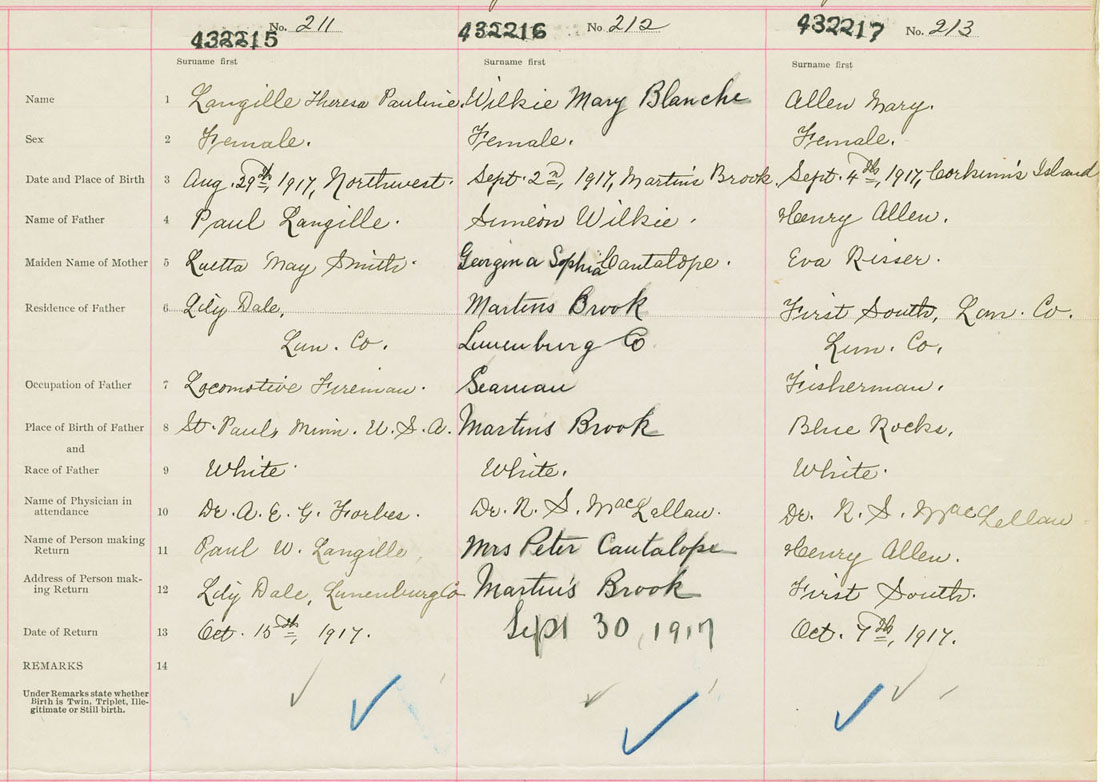 No. 211 No. 212 No. 213
432215 432216 432217
Surname first Surname first Surname first
Name 1 Langille Theresa Pauline. Wilkie Mary Blanche Allen Mary.
Sex 2 Female. Female. Female.
Date and Place of Birth 3 Aug. 29th, 1917, Northwest. Sept. 2n, 1917, Martin's Brook. Sept. 4th, 1917, Corkum's Island
Name of Father 4 Paul Langille. Simeon Wilkie. Henry Allen.
Maiden Name of Mother 5 Luetta May Smith. Georgina Sophia Cantalope. Eva Risser.
Residence of Father 6 Lily Dale, Martins Brook First South, Lun. Co.
Lun. Co. Lunenburg Co Lun. Co.
Occupation of Father 7 Locomotive Fireman. Seaman Fisherman.
Place of Birth of Father 8 St. Pauls Minn. U. S. A. Martins Brook Blue Rocks.
and
Race of Father 9 White. White. White.
Name of Physician in
attendance 10 Dr. A. E. G. Forbes. Dr. R. S. MacLellan. Dr. R. S. MacLellan
Name of Person making
Return 11 Paul W. Langille, Mrs Peter Cantalope Henry Allen.
Address of Person mak-
ing Return 12 Lily Dale, Lunenburg Co Martin's Brook First South.
Date of Return 13 Oct. 15th, 1917. Sept 30, 1917 Oct. 7th, 1917.
REMARKS 14
Under Remarks state whether
Birth is Twin, Triplet, Ille-
gitimate or Still birth.